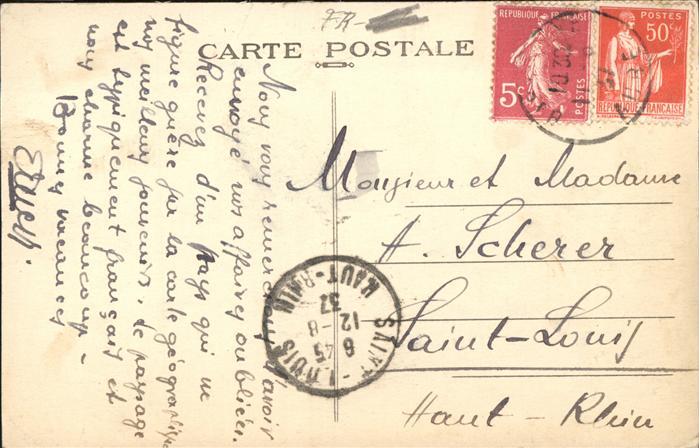 FR-
CARTE POSTALE
REPUBLIQUE FRANÇAISE
5c
POSTES
POSTES
50c
REPUBLIQUE FRANÇAISE
Nous vous remercions d'avoir
envoyé nos affaires oubliées.
Recevez d'un pays qui ne
figure guère sur la carte géographique
nos meilleurs souvenirs. Le paysage
est typiquement français et
nous charme beaucoup -
Bonnes vacances
Monsieur et Madame
A. Scherer
Saint-Louis
Haut-Rhin
SAINT-LOUIS
6 45
12-8
37
HAUT-RHIN